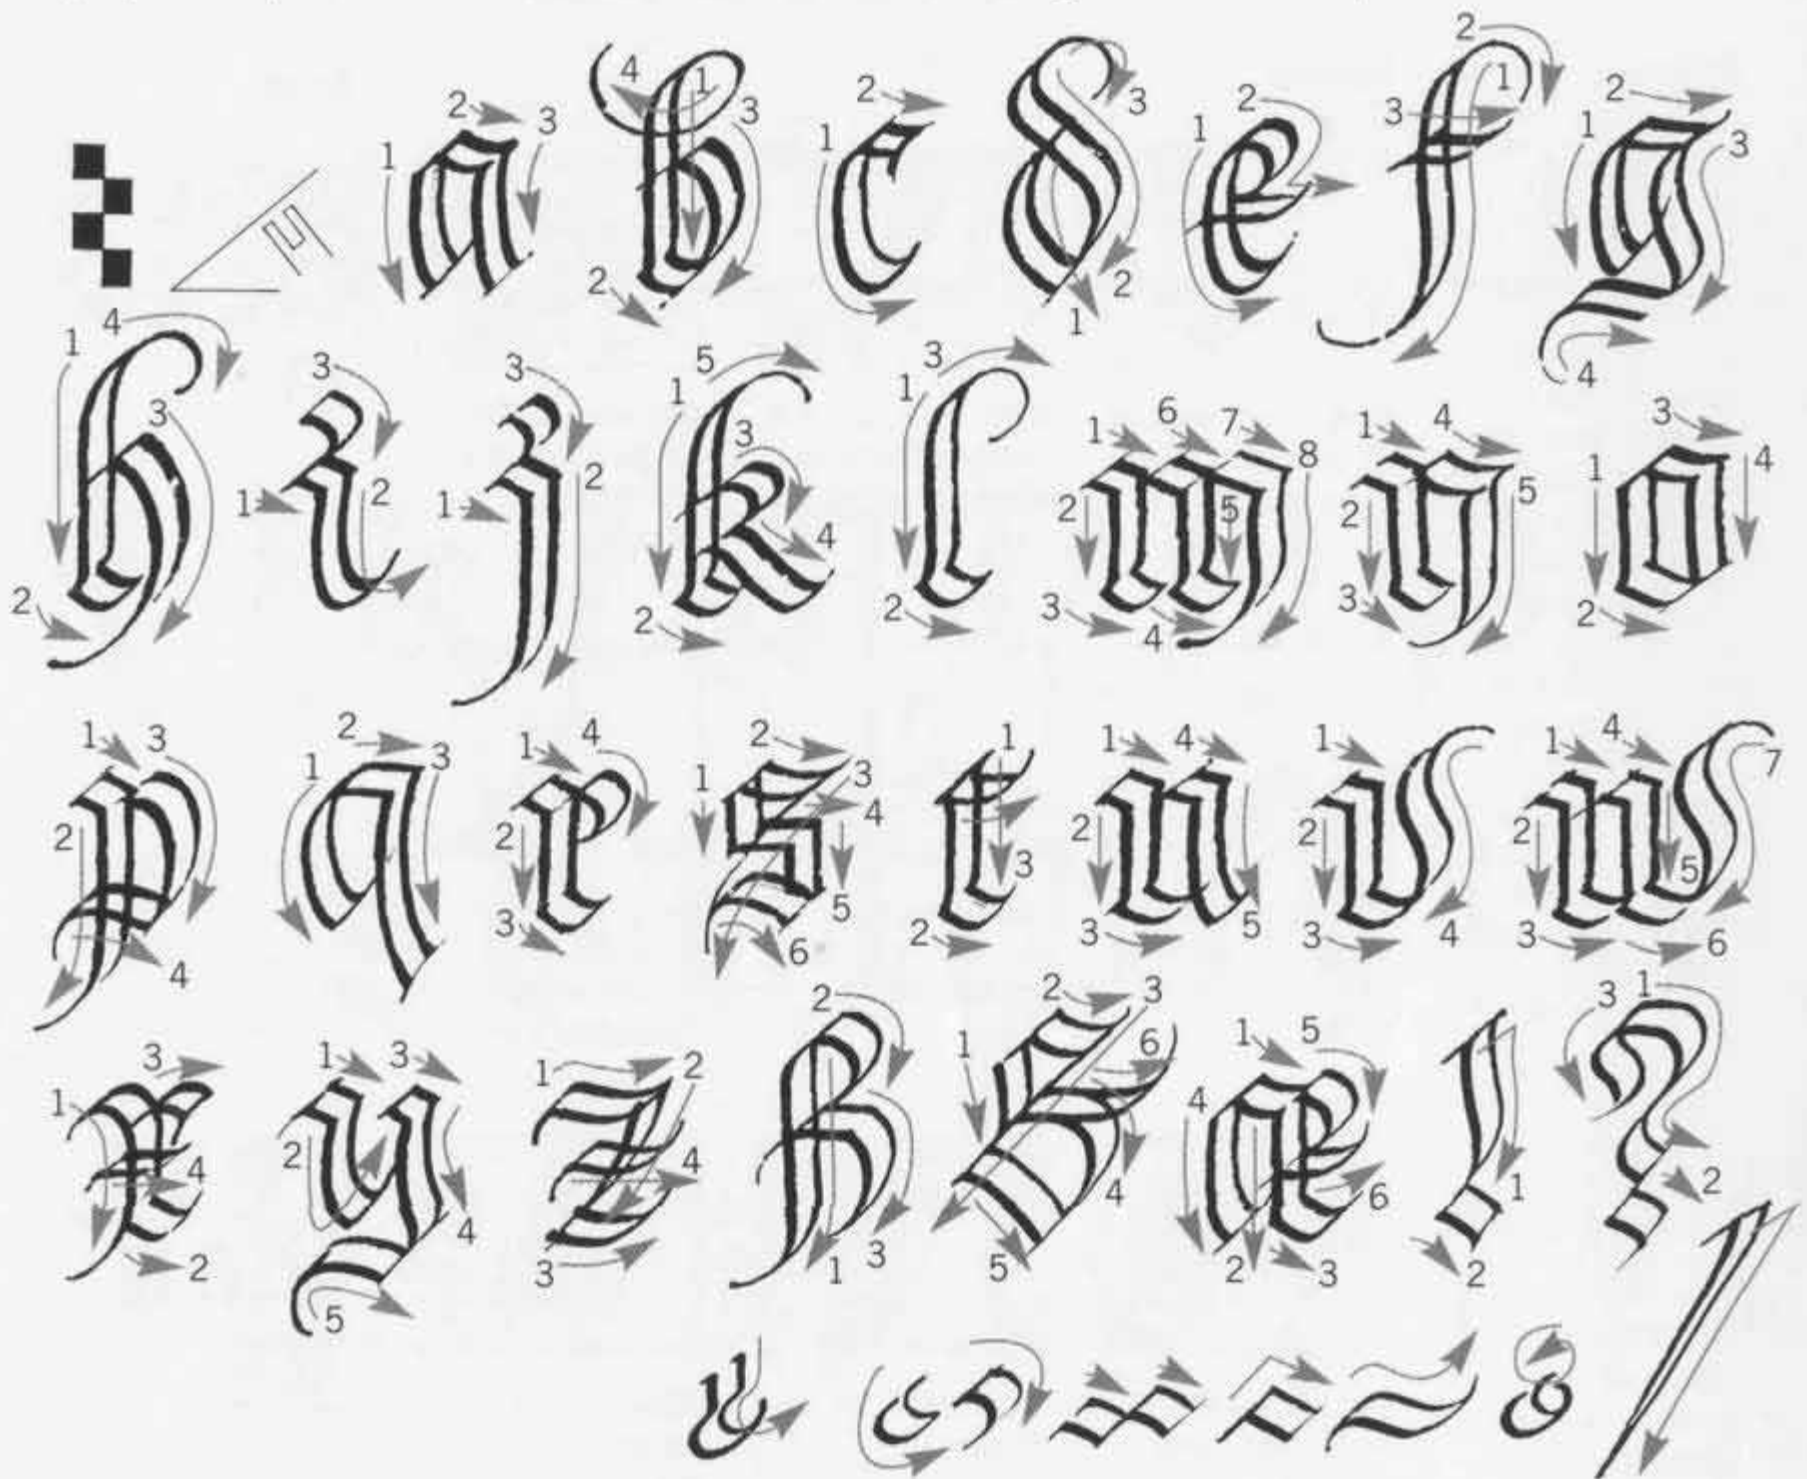 a b c d e f g
h i j k l m n o
p q r s t u v w
x y z ß æ ! ?
/